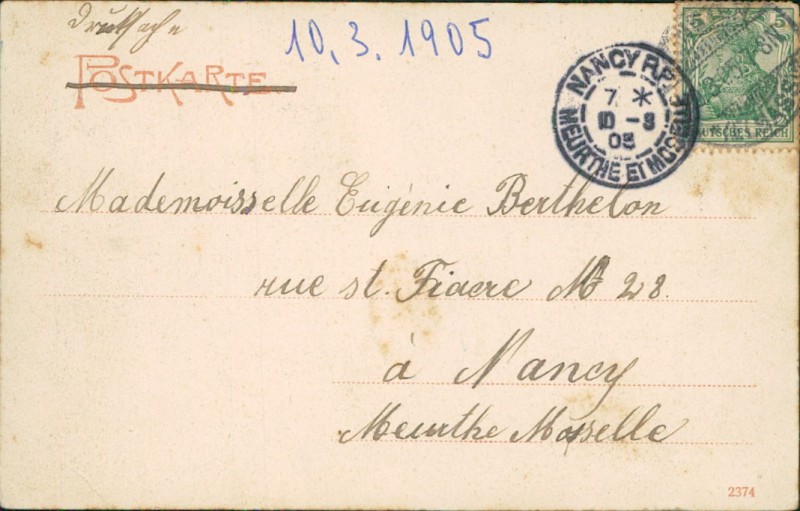 Drucksache
10.3.1905
POSTKARTE
NANCY R.P.
7 *
10 - 3
05
MEURTHE ET MOSELLE
5
DEUTSCHES REICH
Mademoisselle Eugénie Berthelon
rue st. Fiacre № 28.
à Nancy
Meurthe Moselle
2374